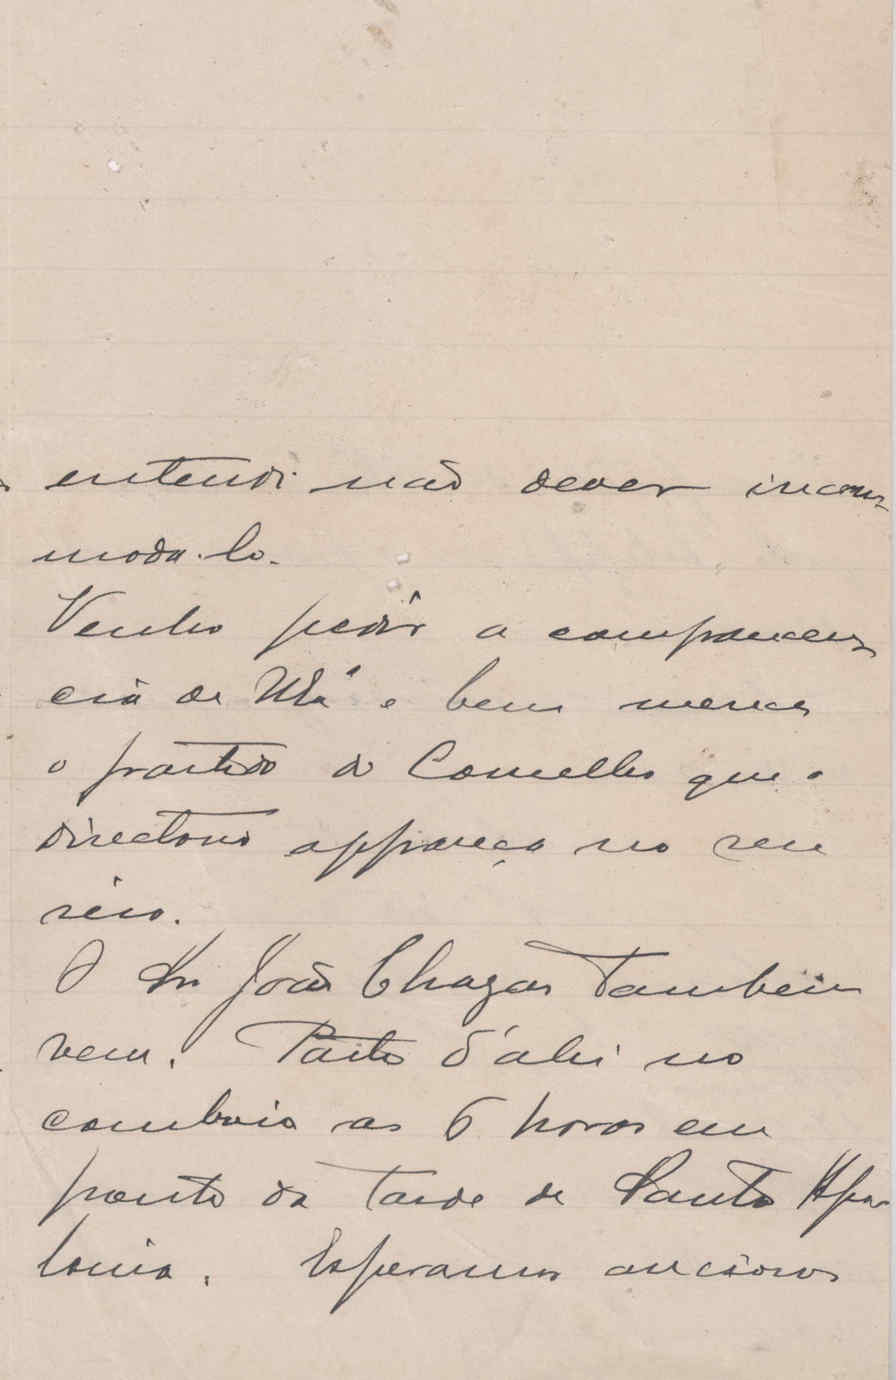 entendi não dever incom
moda-lo.
Venho pedir a comparen
cia de V. Exª e bem merece
o partido do Concelho que o
directorio appareça no seu
seio.
O Sr. João Chagas tambem
vem. Parte d'ahi no
comboio as 6 horas em
ponto da tarde de Santa Apo
lonia. Esperamos anciosos